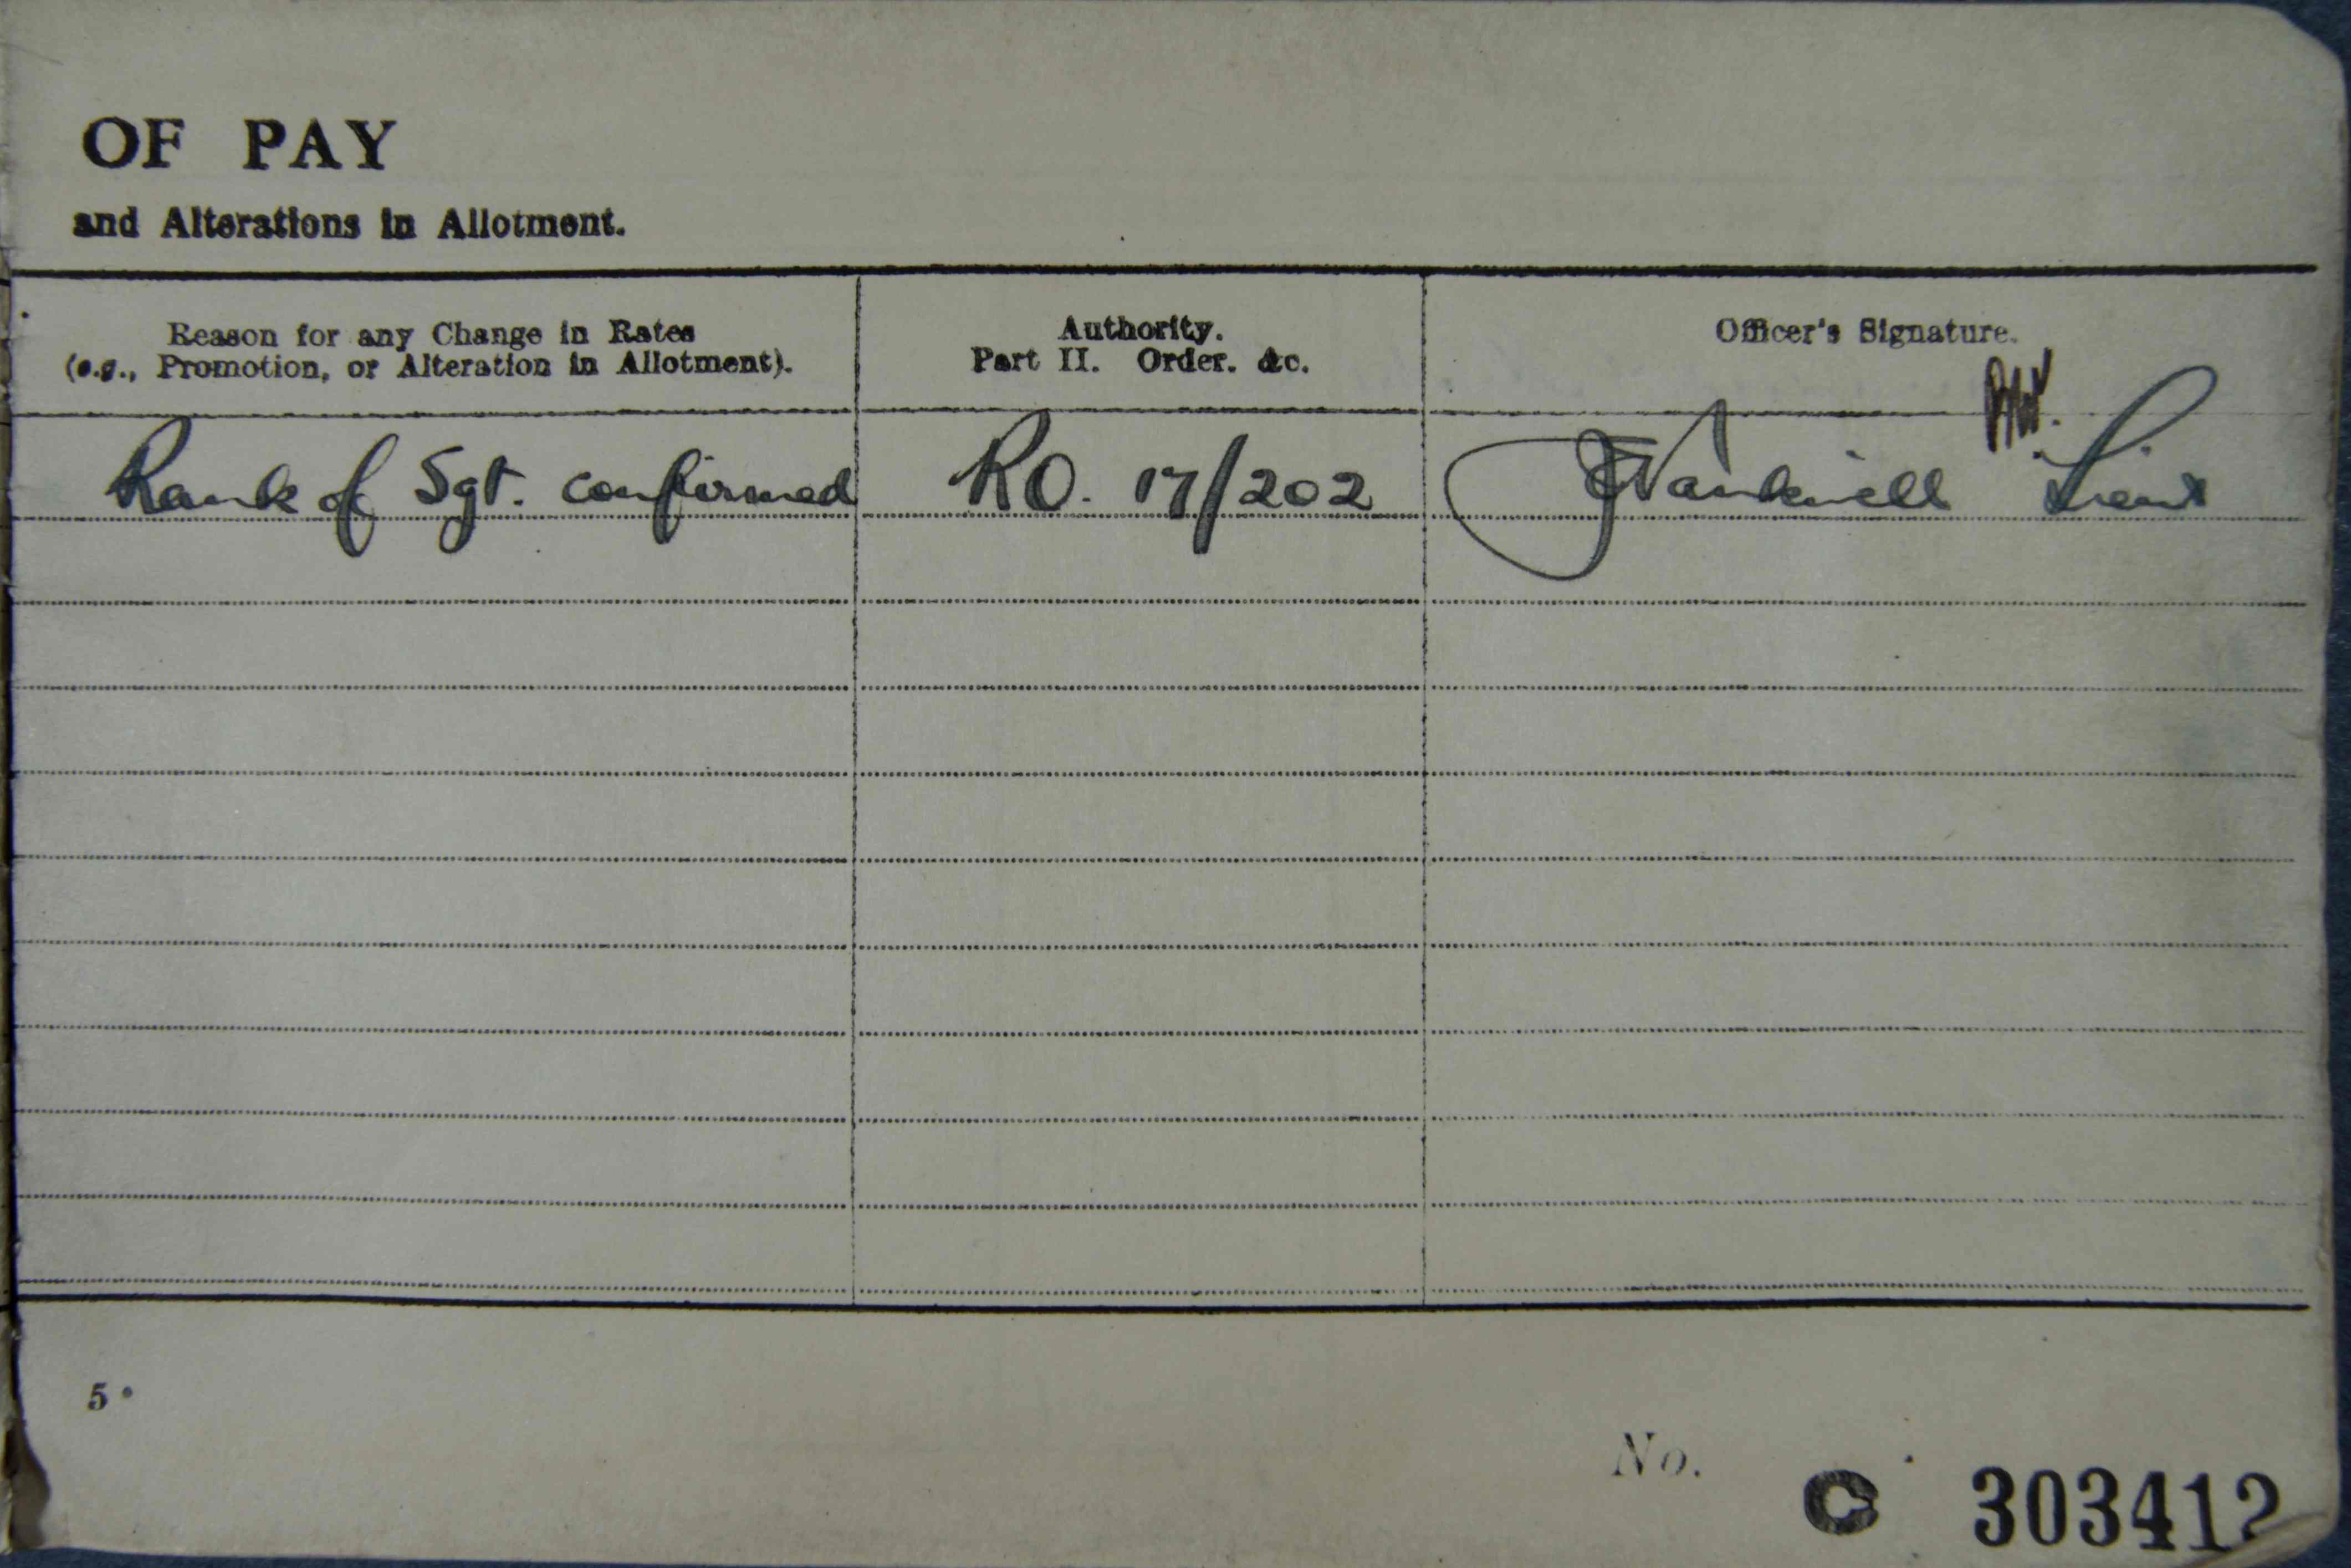 OF PAY
and Alterations in Allotment.
Reason for any Change in Rates
(e.g., Promotion, or Alteration in Allotment).
Authority.
Part II. Order. &c.
Officer's Signature.
Rank of Sgt. confirmed RO. 17/202 Lieut
5.
No. C 303412